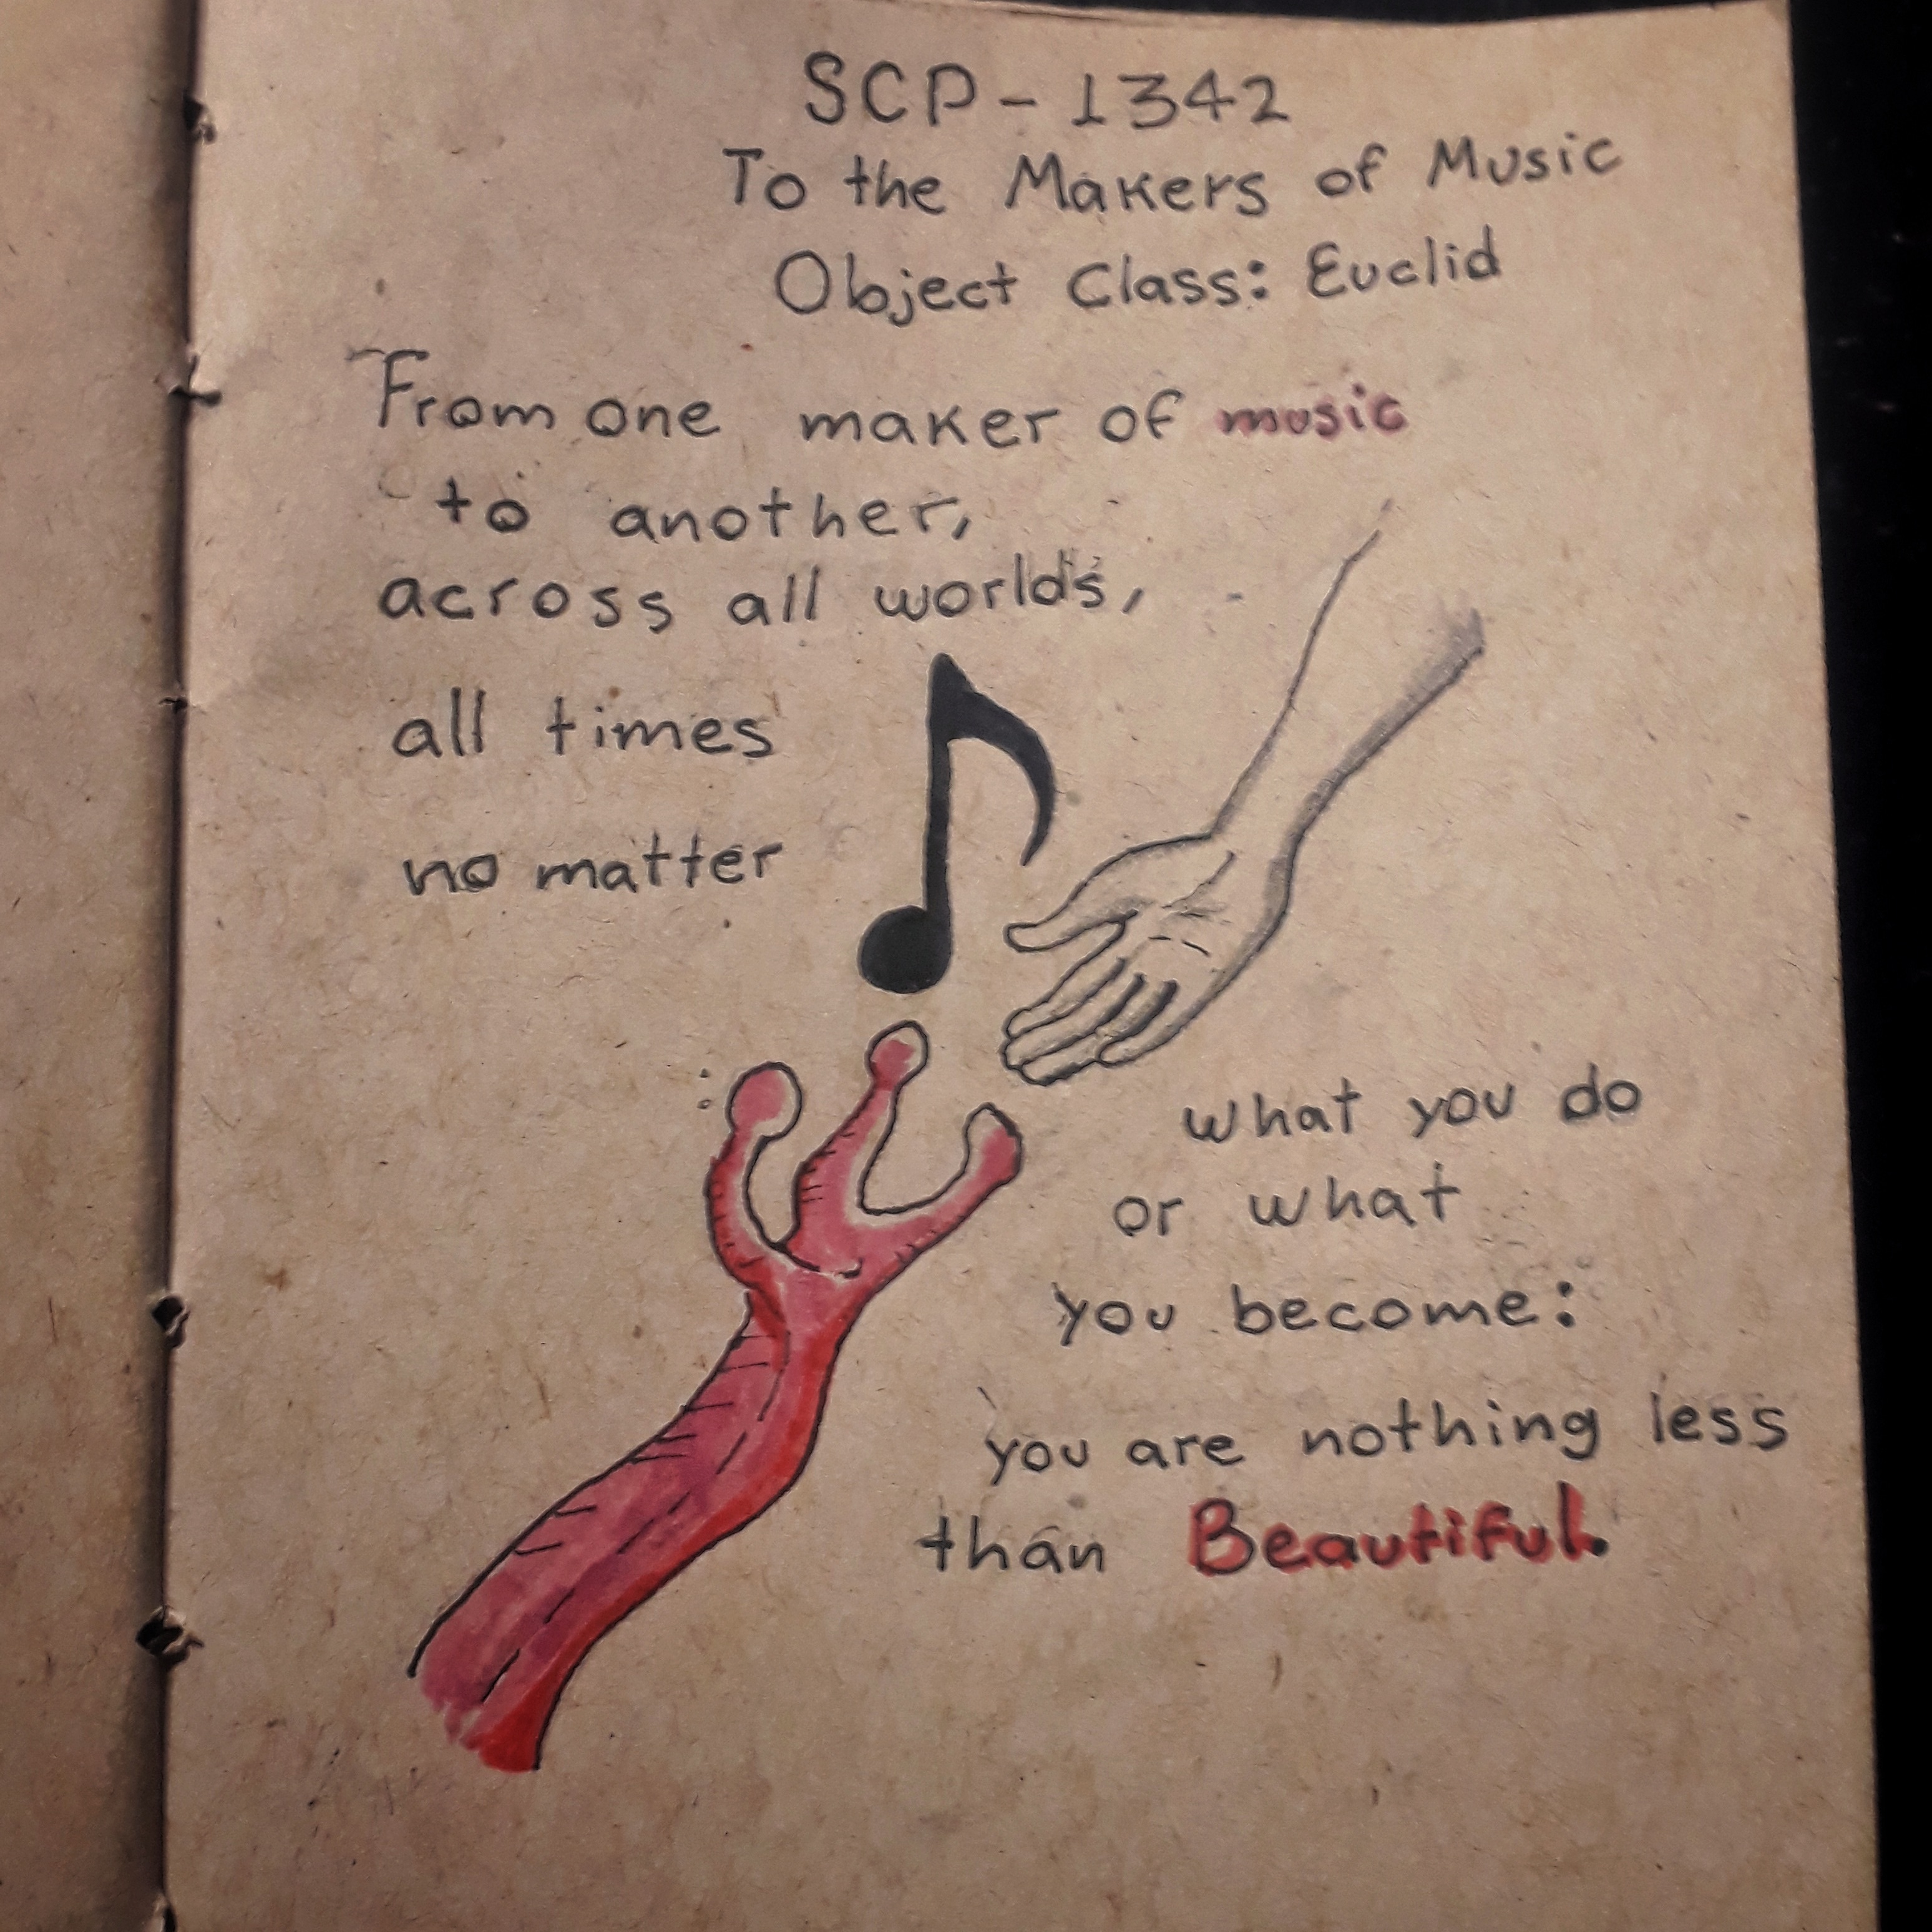 SCP - 1342
To the Makers of Music
Object Class: Euclid
From one maker of music
to another,
across all worlds,
all times
no matter
what you do
or what
you become:
you are nothing less
than Beautiful.